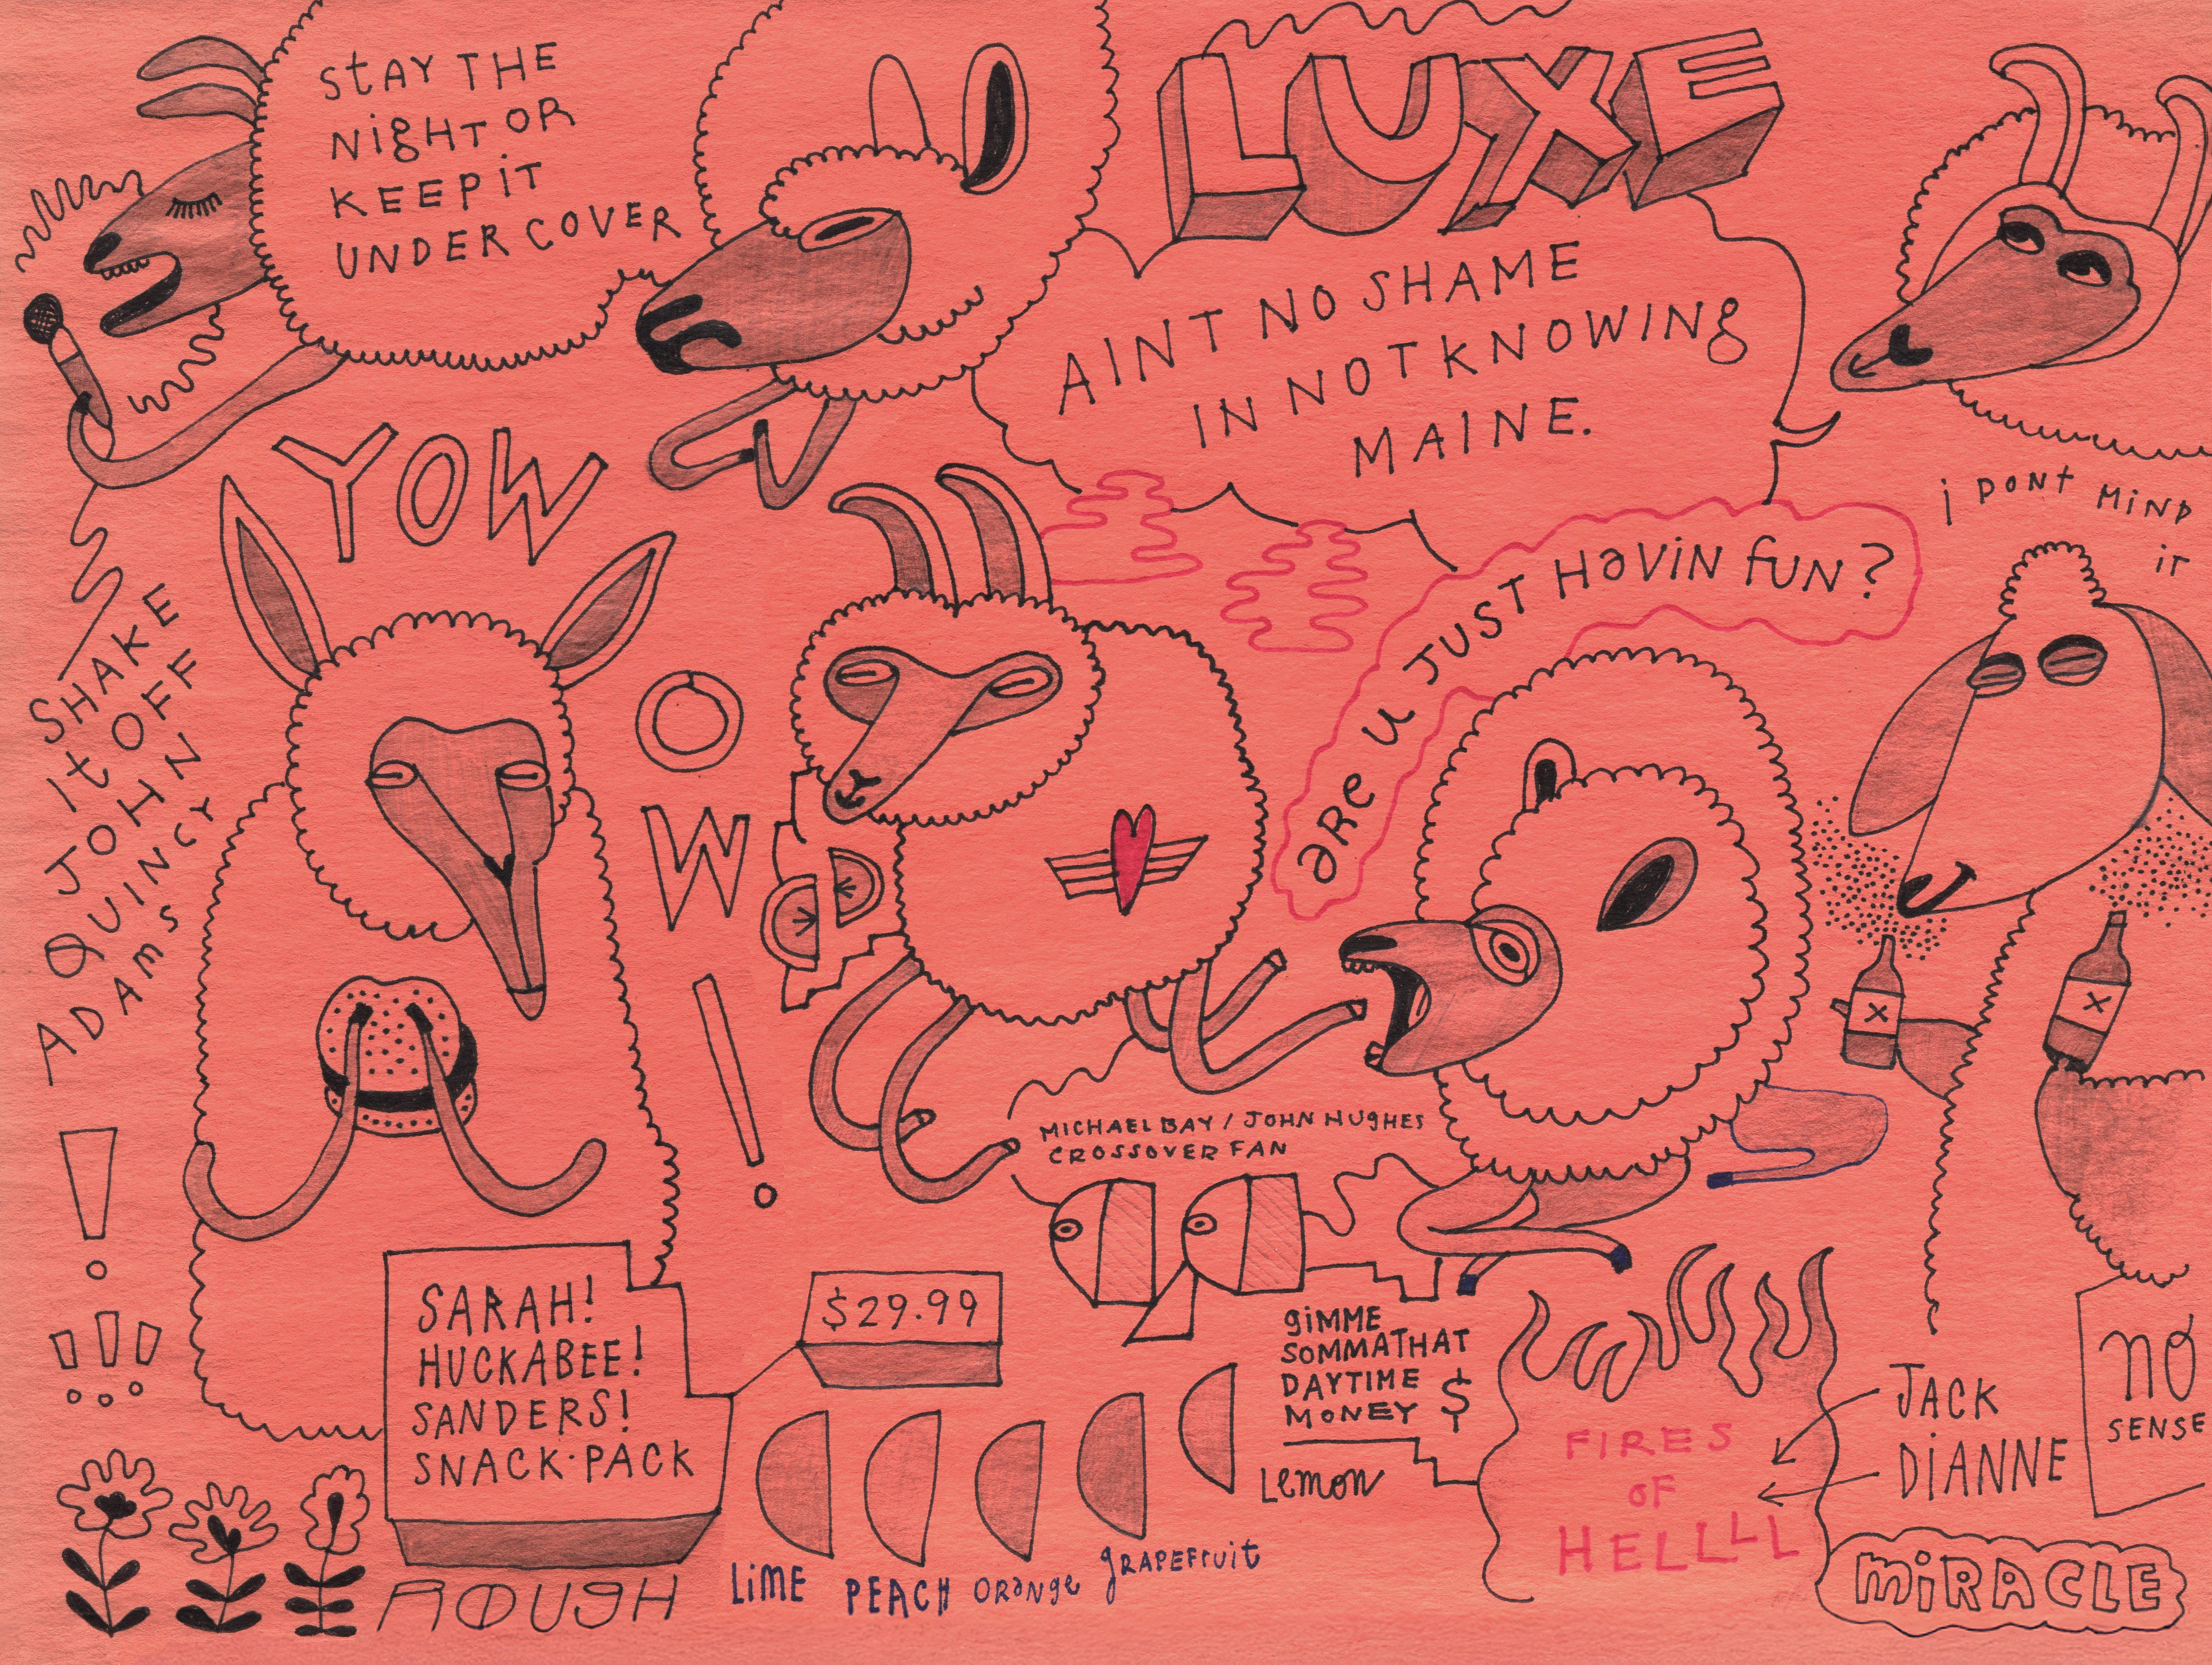 STAY THE
NIGHT OR
KEEP IT
UNDER COVER
LUXE
AINT NO SHAME
IN NOT KNOWING
MAINE.
i DONT MIND
it
YOW
OW!
SHAKE
It OFF
JOHN
QUINCY
ADAMS
!
!!!
are u JUST HaViN fUN?
MICHAEL BAY / JOHN HUGHES
CROSSOVER FAN
X
X
SARAH!
HUCKABEE!
SANDERS!
SNACK·PACK
$29.99
GIMME
SOMMATHAT
DAYTIME
MONEY $
LIME
PEACH
ORaNge
gRAPEFruit
Lemon
ROUGH
FIRES
OF
HELLLLL
JACK
DIANNE
NO
SENSE
MIRACLE